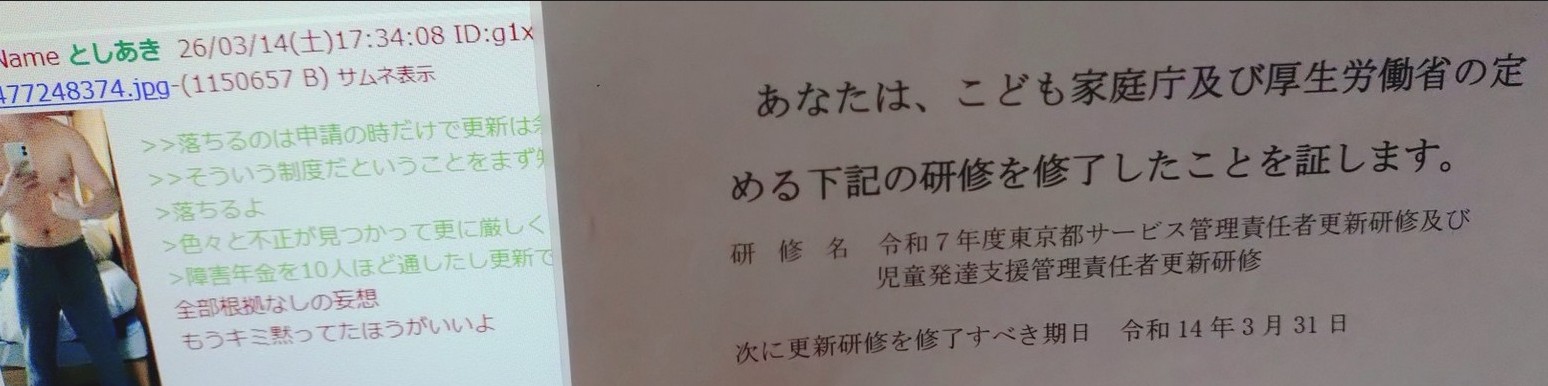 Name としあき 26/03/14(土)17:34:08 ID:g1x
477248374.jpg-(1150657 B) サムネ表示
>>落ちるのは申請の時だけで更新は
>>そういう制度だということをまず
>落ちるよ
>色々と不正が見つかって更に厳しく
>障害年金を10人ほど通したし更新で
全部根拠なしの妄想
もうキミ黙ってたほうがいいよ
あなたは、こども家庭庁及び厚生労働省の定
める下記の研修を修了したことを証します。
研 修 名 令和7年度東京都サービス管理責任者更新研修及び
児童発達支援管理責任者更新研修
次に更新研修を修了すべき期日 令和14年3月31日